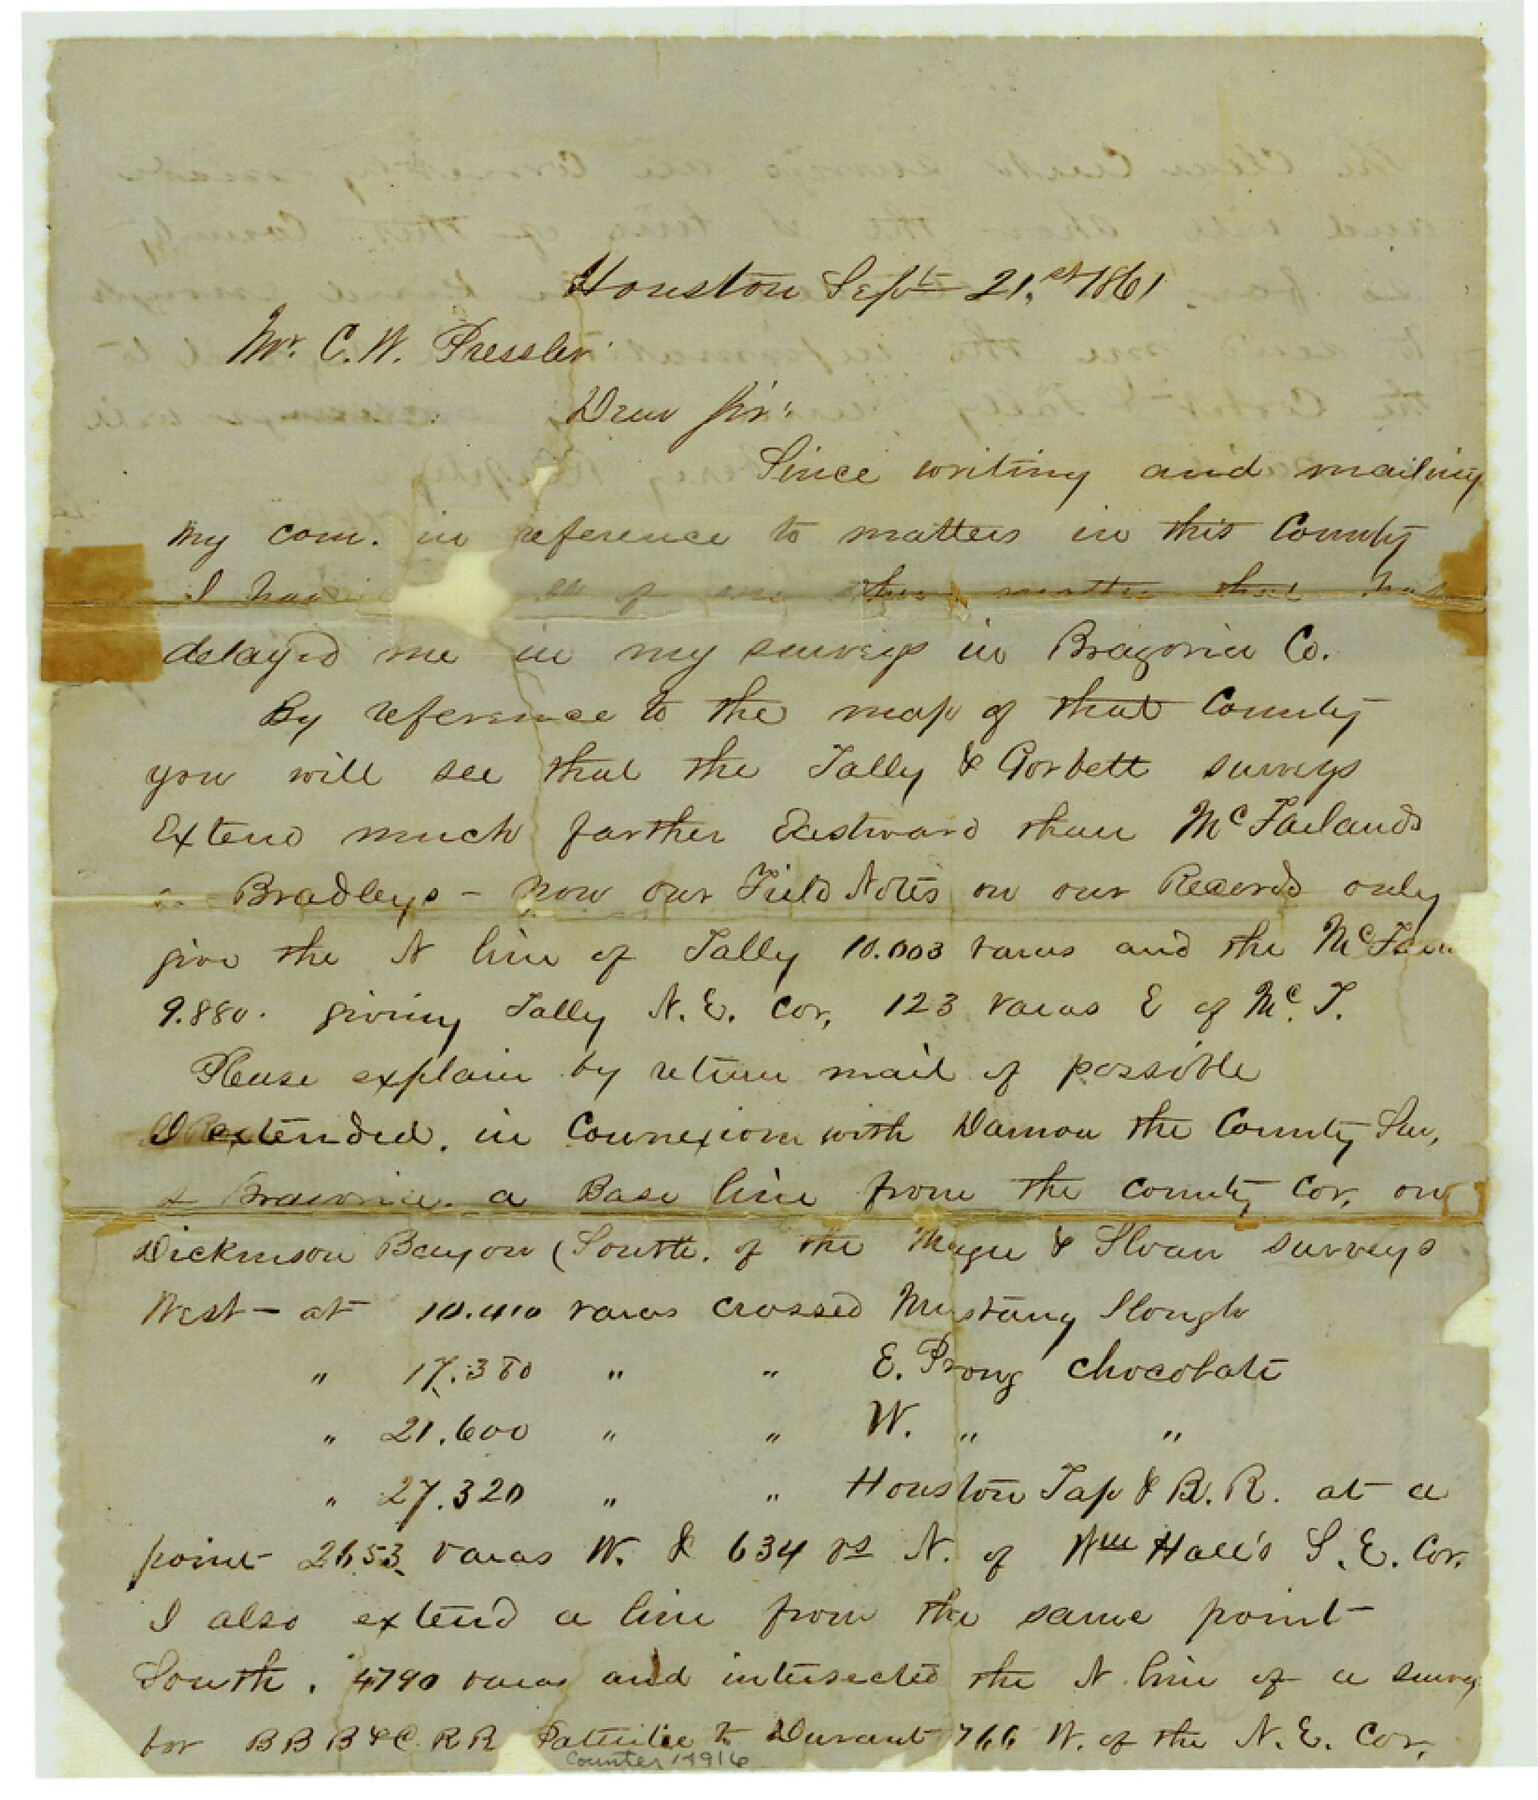 Houston Sept 21.st 1861
Mr. C. W. Pressler
Dear Sir:
Since writing and mailing
my com. in reference to matters in this County
I have of one other matter that has
delayed me in my surveys in Brazoria Co.
By reference to the map of that County
you will see that the Tally & Gorbett surveys
Extend much farther Eastward than McFarlands
Bradleys - now our Field Notes on our Records only
give the N line of Tally 10.003 varas and the McFar
9.880. giving Tally N. E. Cor, 123 varas E of Mc. F.
Please explain by return mail if possible
I extended, in Connexion with Damon the County Sur,
Brazoria, a Base line from the County Cor, on
Dickinson Bayou (South, of the & Sloan surveys
West - at 10.410 varas crossed Mustang Slough
" 17.380 " " E. Prong Chocolate
" 21.600 " " W. " "
" 27.320 " " Houston Tap & B. R. at a
point 2653 varas W. & 634 vs N. of Wm Hall's S. E. Cor.
I also extend a line from the same point
South, 4790 varas and intersected the N line of a survey
for BBB&C. RR Patented to Durant 766 W. of the N. E. Cor,
Counter 14916